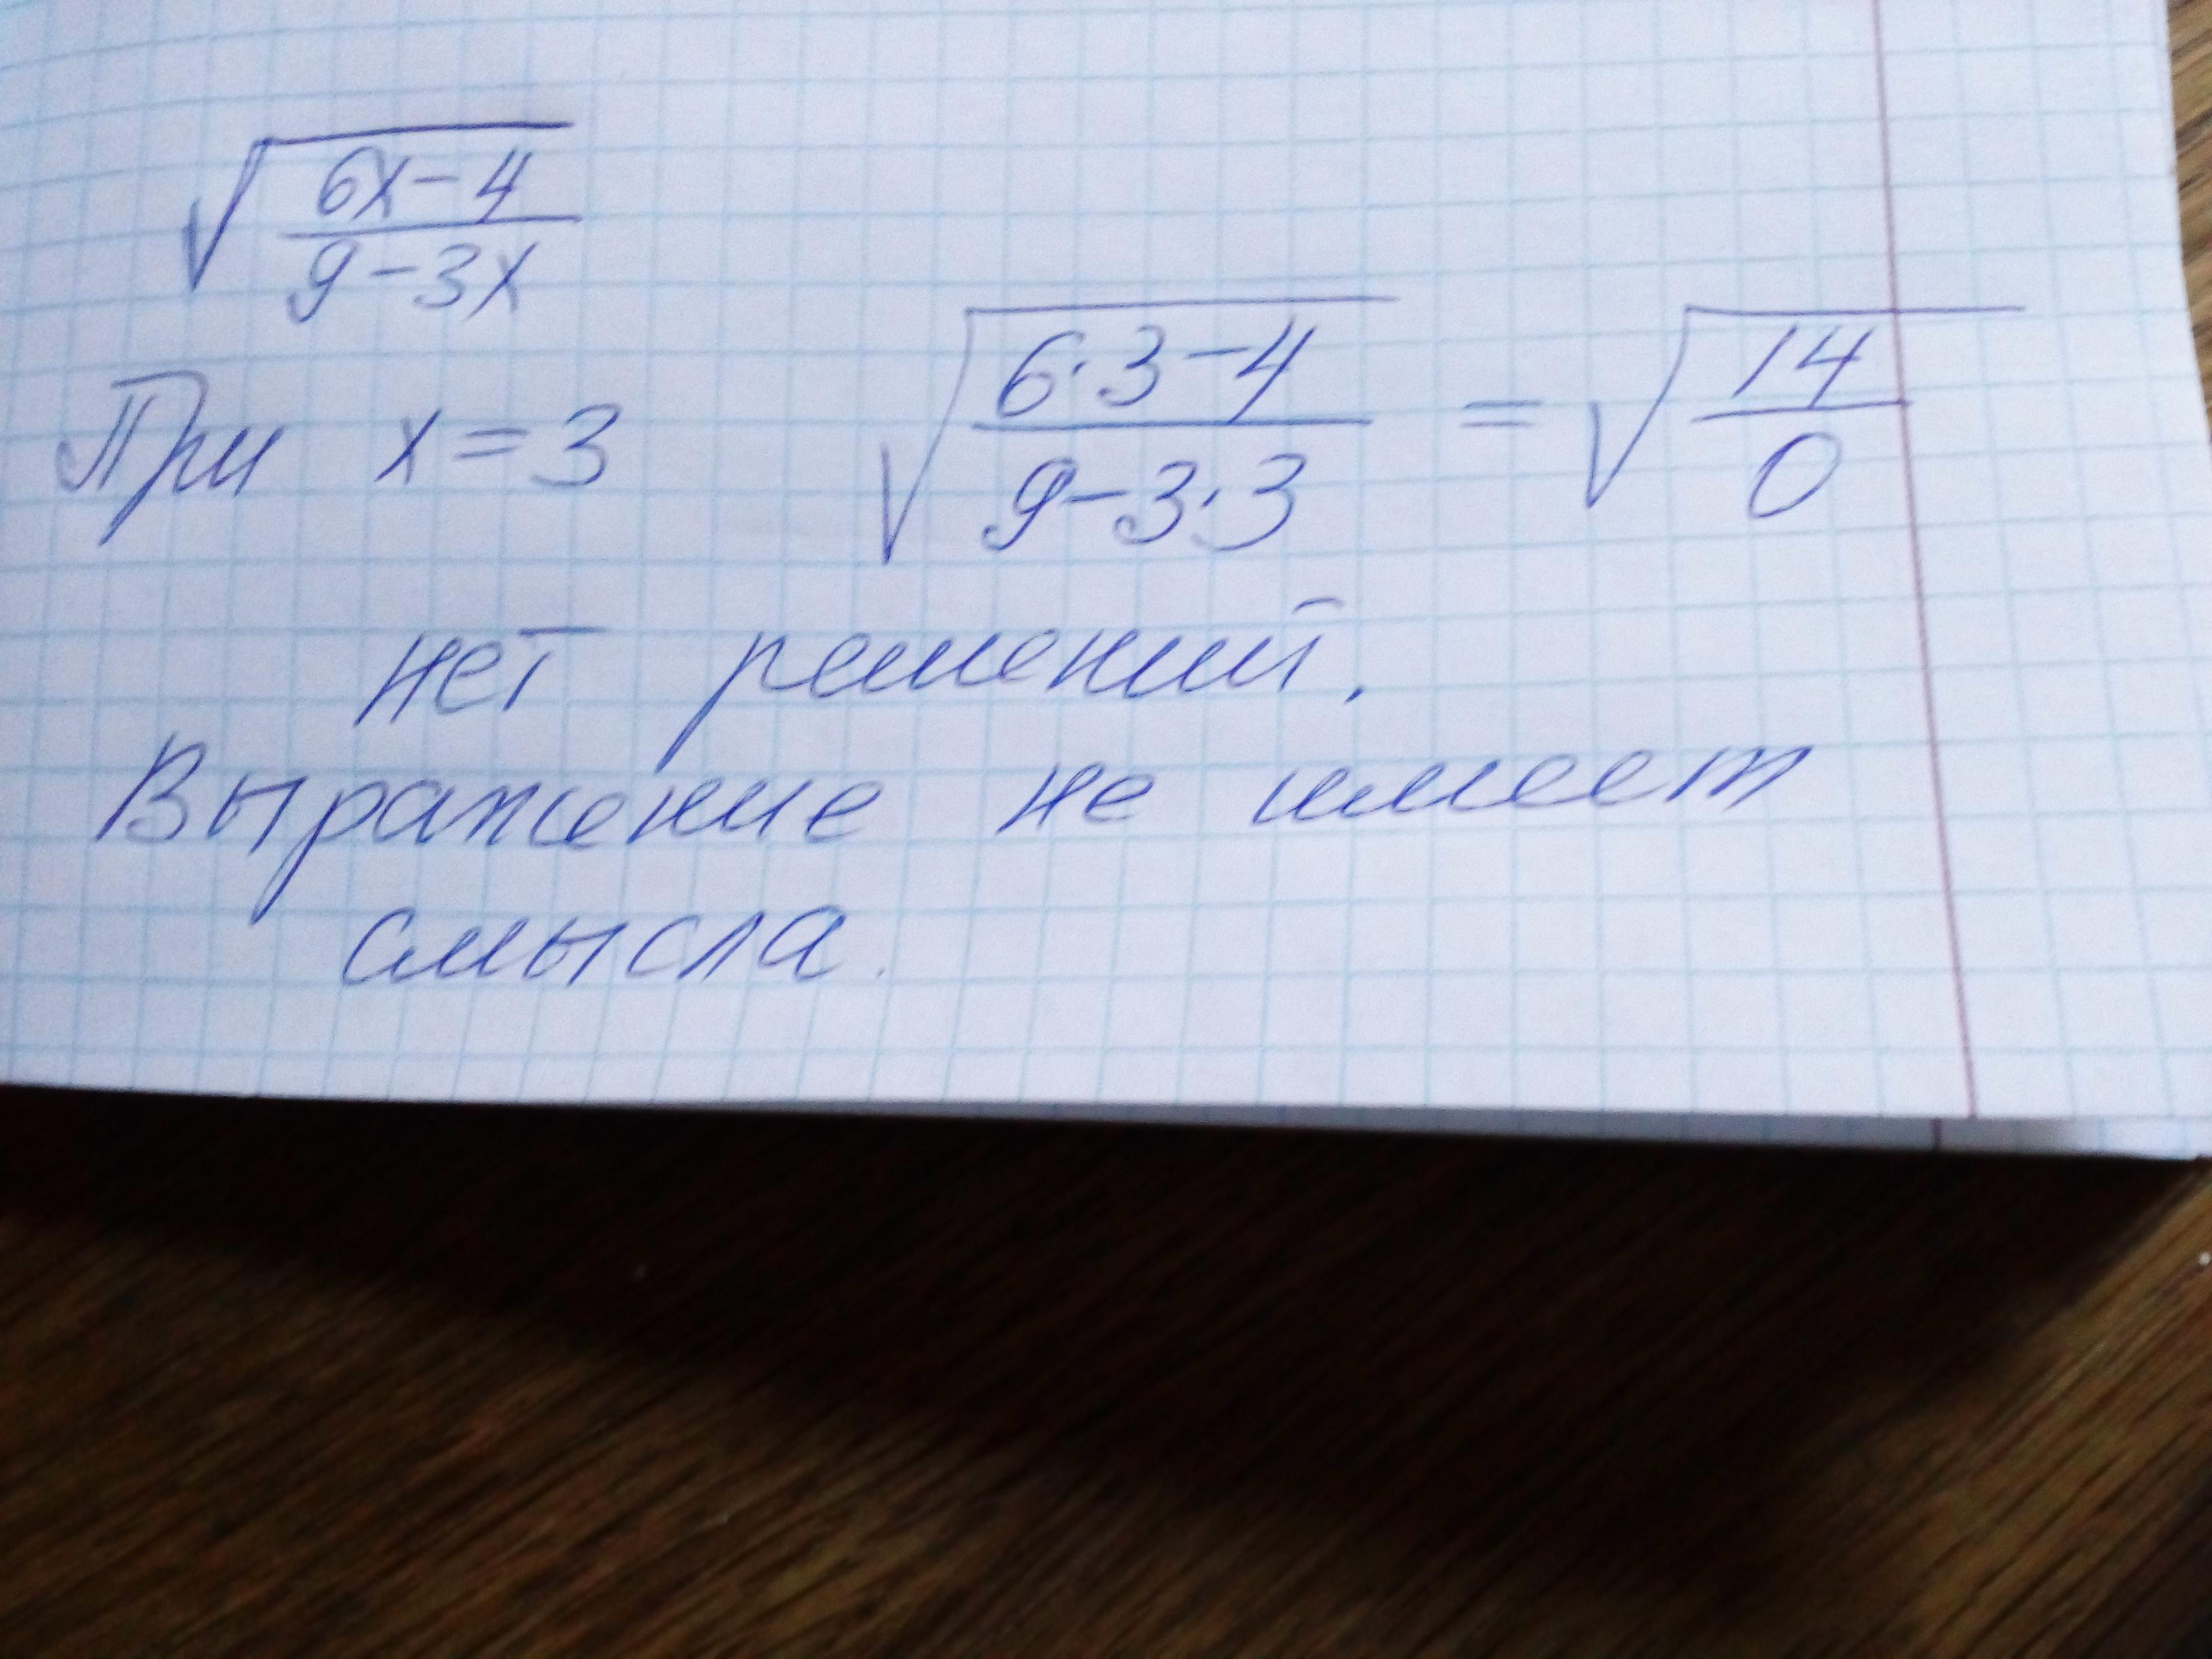 √(6x-4)/(9-3x)
При x=3 √(6·3-4)/(9-3·3) = √14/0
нет решений.
Выражение не имеет
смысла.